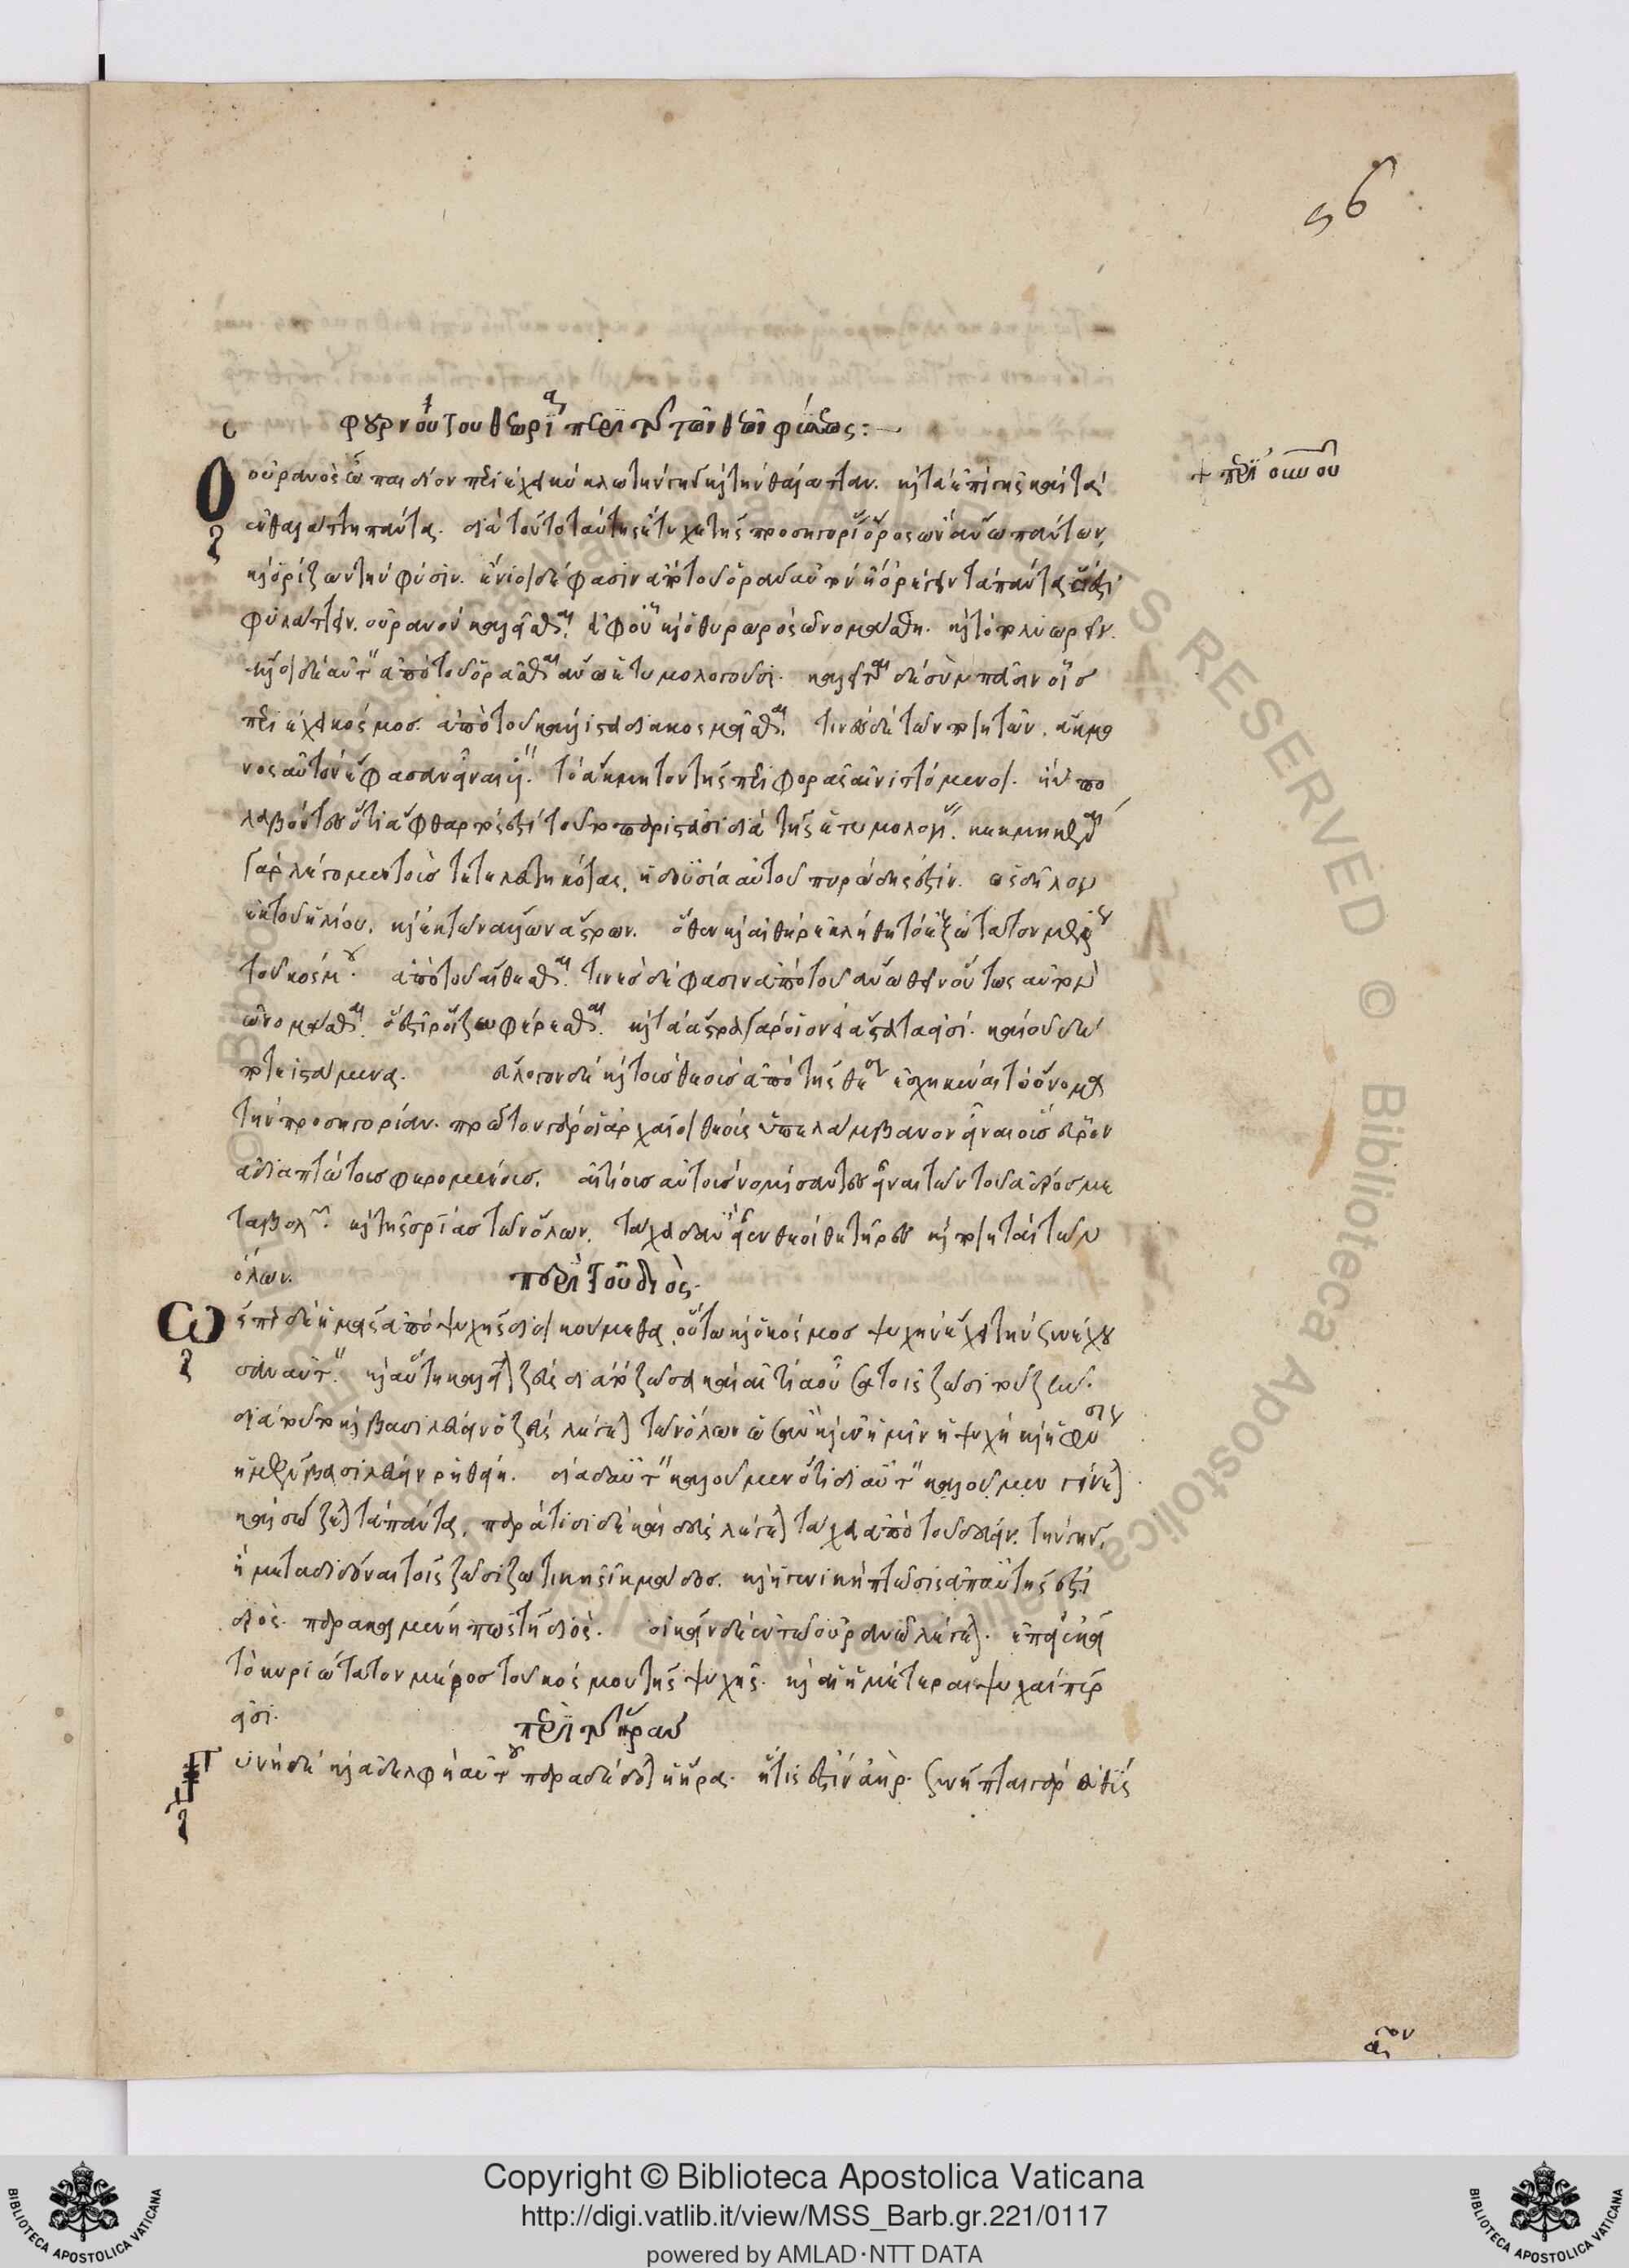 56
φουρνούτου θεωρία περὶ τῆς τῶν θεῶν φύσεως:—
Ὁ οὐρανὸς ὦ παιδίον περιέχει κύκλω τὴν γῆν καὶ τὴν θάλατταν. καὶ τὰ ἐπὶ γῆς καὶ τὰ
ἐν θαλάττη πάντα. διὰ τοῦτο ταύτης ἔτυχε τῆς προσηγορίας οὖρος ὢν ἄνω πάντων,
καὶ ὁρίζων τὴν φύσιν. ἔνιοι δέ φασιν ἀπὸ τοῦ ὁρᾶν αὐτὸν ἢ ὀρεύειν τὰ πάντα
φυλάττειν. οὐρανὸν καλεῖσθαι. ἀφ' οὗ καὶ ὁ θυρωρὸς ὠνομάσθη. καὶ τὸ πολυωρεῖν.
καὶ οἱ δὲ αὐτὸν ἀπὸ τοῦ ὁρᾶσθαι ἄνω ἐτυμολογοῦσι. καλεῖται δὲ σὺν πᾶσιν οἷς
περιέχει κόσμος. ἀπὸ τοῦ κάλλιστα διακοσμεῖσθαι. τινὲς δὲ τῶν ποιητῶν. ἄκμο
νος αὐτὸν ἔφασαν εἶναι υἱόν. τὸ ἄκμητον τῆς περιφορᾶς αἰνιττόμενοι. ἢ ὑπο
λαβόντες ὅτι ἄφθαρτός ἐστι τοῦτο παριστᾶσι διὰ τῆς ἐτυμολογίας. κεκμηκέναι
γὰρ λέγομεν τοὺς τετελευτηκότας. ἡ δὲ οὐσία αὐτοῦ πυρώδης ἐστίν. ὡς δῆλον
ἐκ τοῦ ἡλίου. καὶ ἐκ τῶν ἄλλων ἄστρων. ὅθεν καὶ αἰθὴρ ἐκλήθη τὸ ἐξώτατον μέρος
τοῦ κόσμου. ἀπὸ τοῦ αἴθεσθαι. τινὲς δέ φασιν ἀπὸ τοῦ ἄνω θεῖν οὕτως αὐτὸν
ὠνομάσθαι. ὅ ἐστι ῥοίζω φέρεσθαι. καὶ τὰ ἄστρα γὰρ οἱονεὶ ἄστατά εἰσι. καὶ οὐδέ
ποτε ἱστάμενα. εὔλογον δὲ καὶ τοὺς θεοὺς ἀπὸ τῆς θεύσεως ἐσχηκέναι τὸ ὄνομα
τὴν προσηγορίαν. πρῶτον γὰρ οἱ ἀρχαῖοι θεοὺς ὑπελάμβανον εἶναι οὓς ἑώρων
ἀδιαπτώτους φερομένους. αἰτίους αὐτοὺς νομίσαντες εἶναι τῶν τοῦ ἀέρος με
ταβολῶν. καὶ τῆς σωτηρίας τῶν ὅλων. τάχα δ' ἂν εἶεν θεοὶ θετῆρες καὶ ποιηταὶ τῶν
ὅλων. περὶ τοῦ διός.
Ὥσπερ δὲ ἡμεῖς ἀπὸ ψυχῆς διοικούμεθα οὕτω καὶ ὁ κόσμος ψυχὴν ἔχει τὴν συνέχου
σαν αὐτόν. καὶ αὕτη καλεῖται ζεὺς διαπὸ ζῶσα καὶ αἰτία οὖσα τοῖς ζῶσι τοῦ ζῆν.
διὰ τοῦτο καὶ βασιλεύειν ὁ ζεὺς λέγεται τῶν ὅλων ὡς ἂν καὶ ἐν ἡμῖν ἡ ψυχὴ καὶ ἡ φύσις
ἡμῶν βασιλεύειν ῥηθείη. δία δὲ αὐτὸν καλοῦμεν ὅτι δι' αὐτὸν καλοῦμεν γίνεται
καὶ σώζεται τὰ πάντα. παρά τισι δὲ καὶ δεὺς λέγεται τάχα ἀπὸ τοῦ δεύειν τὴν γῆν.
ἢ μεταδιδόναι τοῖς ζῶσι ζωτικῆς ἰκμάδος. καὶ ἡ γενικὴ πτῶσις ἀπ' αὐτῆς ἐστι
διός. παρακειμένη πως τῆ διός. οἰκεῖν δὲ ἐν τῶ οὐρανῶ λέγεται. ἐπεὶ ἐκεῖ
τὸ κυριώτατον μέρος τοῦ κόσμου τῆς ψυχῆς. καὶ αἱ ἡμέτεραι ψυχαὶ πῦρ
εἰσι. περὶ τῆς ἥρας
Γυνὴ δὲ καὶ ἀδελφὴ αὐτοῦ παραδέδοται ἡ ἥρα. ἥτις ἐστὶν ἀήρ. συνῆπται γὰρ εὐθὺς
+ περὶ οὐρανοῦ
Copyright © Biblioteca Apostolica Vaticana
http://digi.vatlib.it/view/MSS_Barb.gr.221/0117
powered by AMLAD·NTT DATA
BIBLIOTECA APOSTOLICA VATICANA
BIBLIOTECA APOSTOLICA VATICANA